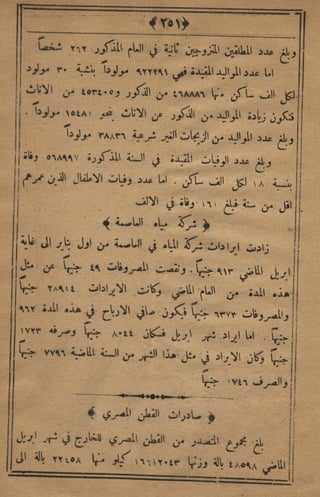 ﴿٢٥١﴾
وبلغ عدد المطلقين المتزوجين ثانية في العام المذكور ٢٦٢ شخصاً
اما عدد المواليد المقيدة فهي ٩٢٢٢٩١ مولوداً بنسبة ٣٠ مولود
لكل الف ساكن منها ٤٦٨٨٨٦ من الذكور و٤٥٣٤٠٥ من الاناث
فتكون زيادة المواليد من الذكور عن الاناث بنحو ١٥٤٨١ مولوداً.
وبلغ عدد المواليد من الزيجات الغير شرعية ٣٨٨٣٦ مولوداً
وبلغ عدد الوفيات المقيدة في السنة المذكورة ٥٦٨٩٩٧ وفاة
بنسبة ١٨ لكل الف ساكن . اما عدد وفيات الاطفال الذين عمرهم
اقل من سنة فبلغ ١٦١ وفاة في الالف
﴿ شركة مياه العاصمة ﴾
زادت ايرادات شركة المياه في العاصمة من اول يناير الى غاية
ابريل الماضي ٩١٣ جنيهاً. ونقصت المصروفات ٤٩ جنيهاً عن مثل
هذه المدة من العام الماضي وكانت الايرادات ٢٨٩١٤ جنيهاً
والمصروفات ٦٣٧٣ جنيهاً فيكون صافي الارباح في هذه المدة ٩٦٢
جنيهاً . اما ايراد شهر ابريل فكان ٨٠٤٤ جنيهاً وصرفه ١٧٢٣
جنيهاً وكان الايراد في مثل هذا الشهر من السنة الماضية ٧٧٩٦ جنيهاً
والصرف ٠٧٤٦ جنيهاً
﴿ صادرات القطن المصري ﴾
بلغ مجموع المتصدر من القطن المصري للخارج في شهر ابريل
الماضي ٤٨٥٩٨ بالة وزنها ١٦٦١٢٠٤٣ كيلو منها ٢٢٤٥٨ بالة الى